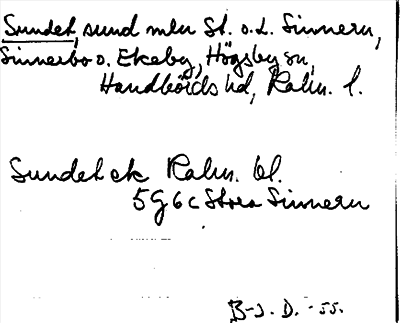 Sundet, sund mln St. o. L. Sinnern,
Sinnerbo o. Ekeby, Högsby sn,
Handbörds hd, Kalm. l.
Sundet ek Kalm. bl.
5G6c Stora Sinnern
B-J. D. -55.